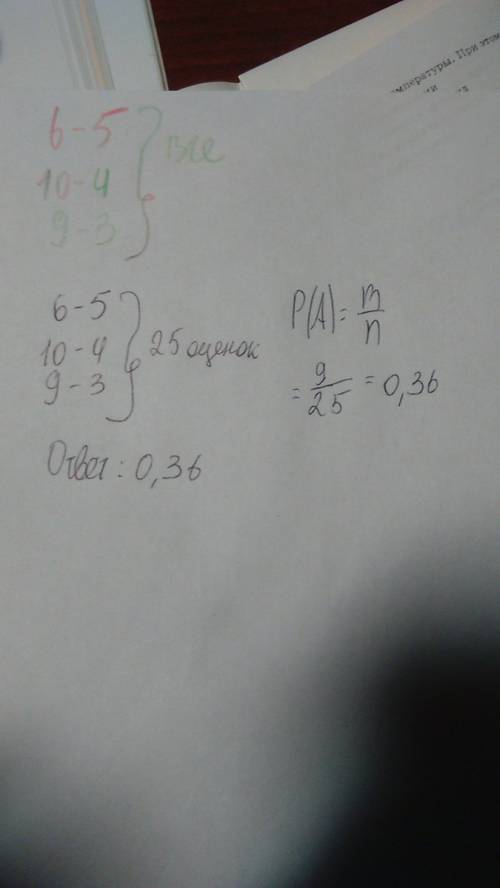 мпературы. При этом
6-5
10-4
9-3
Все
6-5
10-4
9-3
25 оценок
P(A)= m/n
= 9/25 = 0,36
Ответ: 0,36